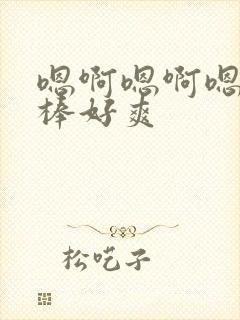 嗯啊嗯啊嗯
棒好爽
松吃子